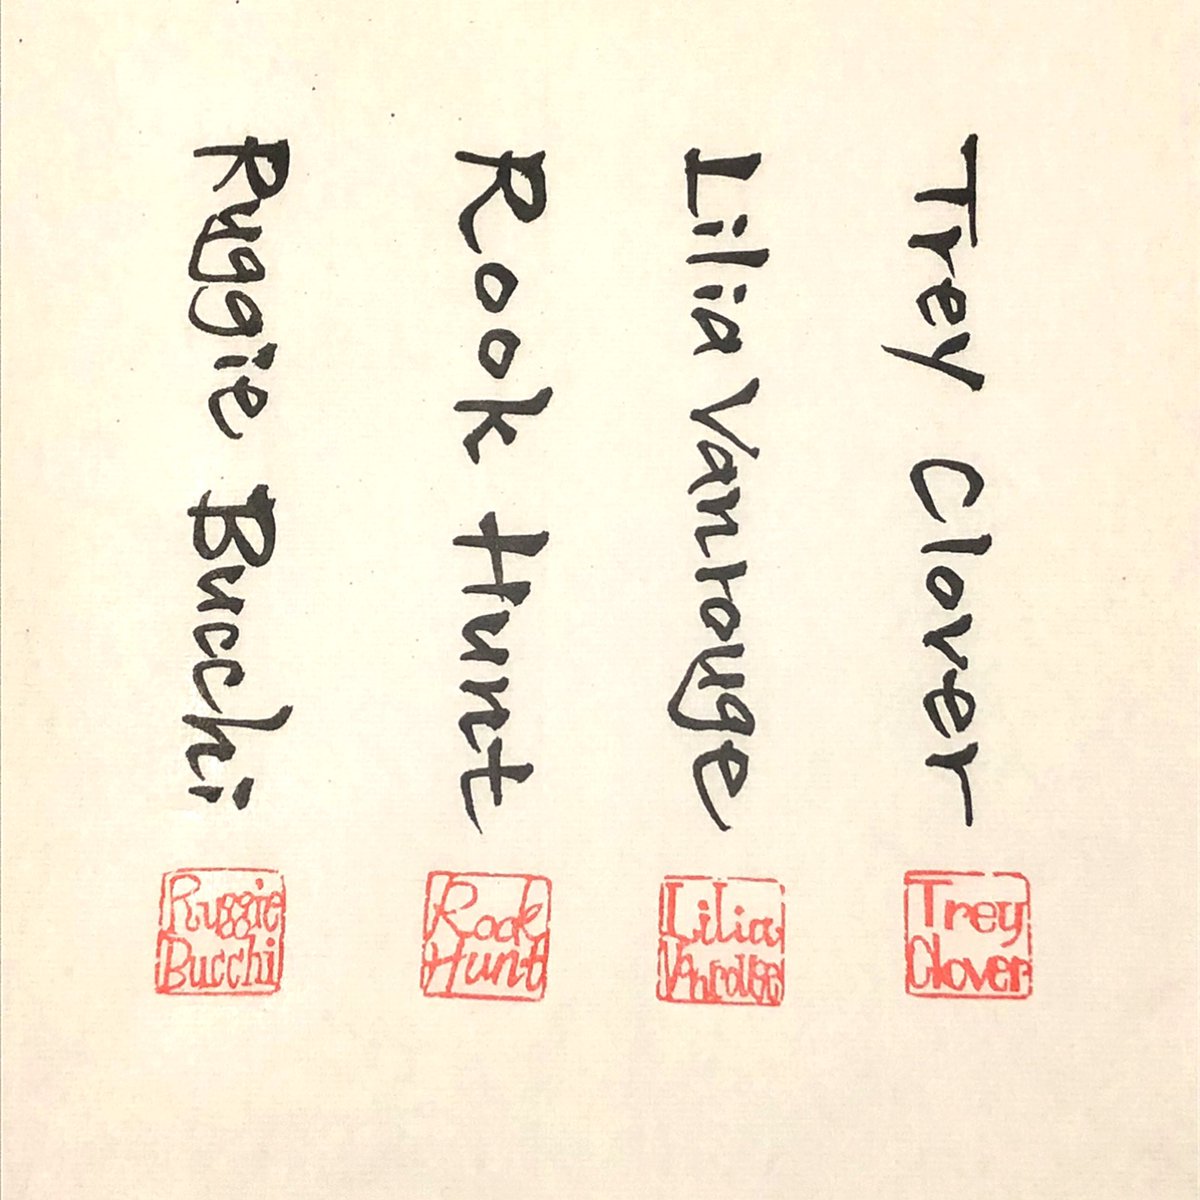 Trey Clover
Trey
Clover
Lilia Vanrouge
Lilia
Vanrouge
Rook Hunt
Rook
Hunt
Ruggie Bucchi
Ruggie
Bucchi